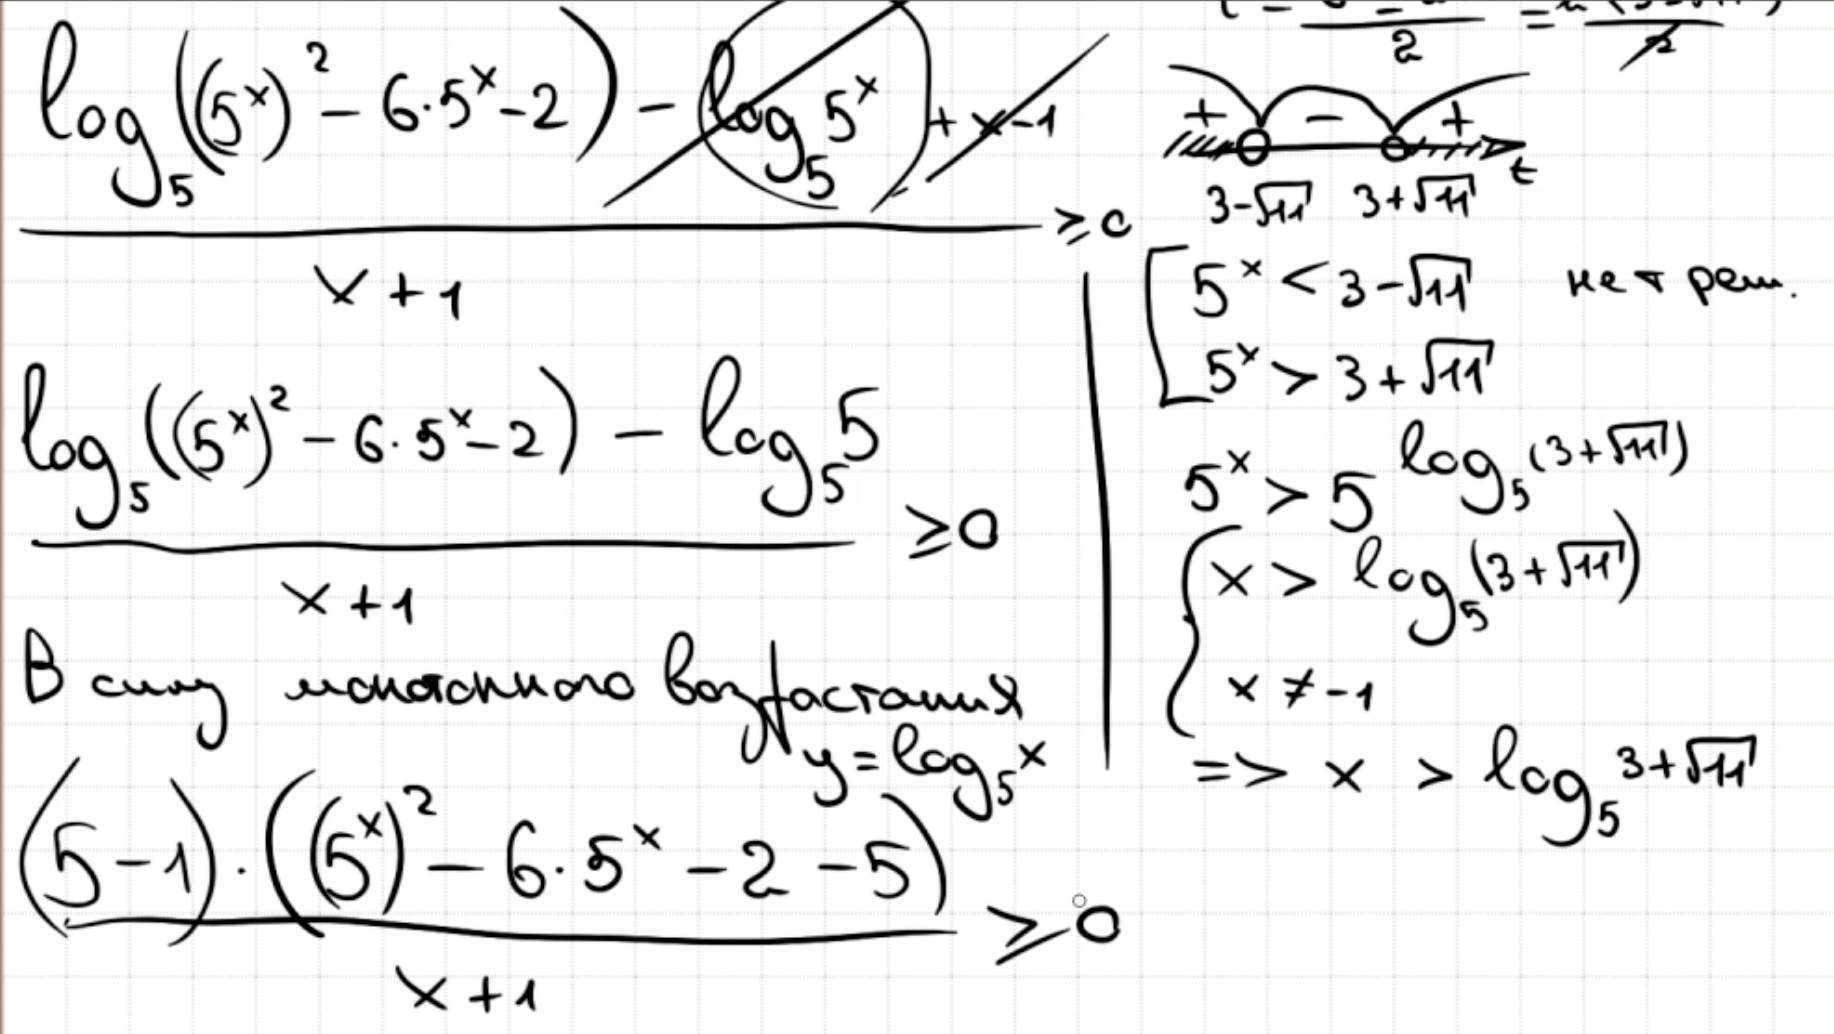 log₅((5ˣ)² − 6·5ˣ − 2) − log₅5ˣ + x − 1
x + 1
≥ 0
log₅((5ˣ)² − 6·5ˣ − 2) − log₅5
x + 1
≥ 0
В силу монотонного возрастания
y = log₅x
(5 − 1)·((5ˣ)² − 6·5ˣ − 2 − 5)
x + 1
≥ 0
2
+ − +
3−√11 3+√11 t
5ˣ < 3 − √11 нет реш.
5ˣ > 3 + √11
5ˣ > 5^log₅(3+√11)
x > log₅(3+√11)
x ≠ −1
=> x > log₅3+√11